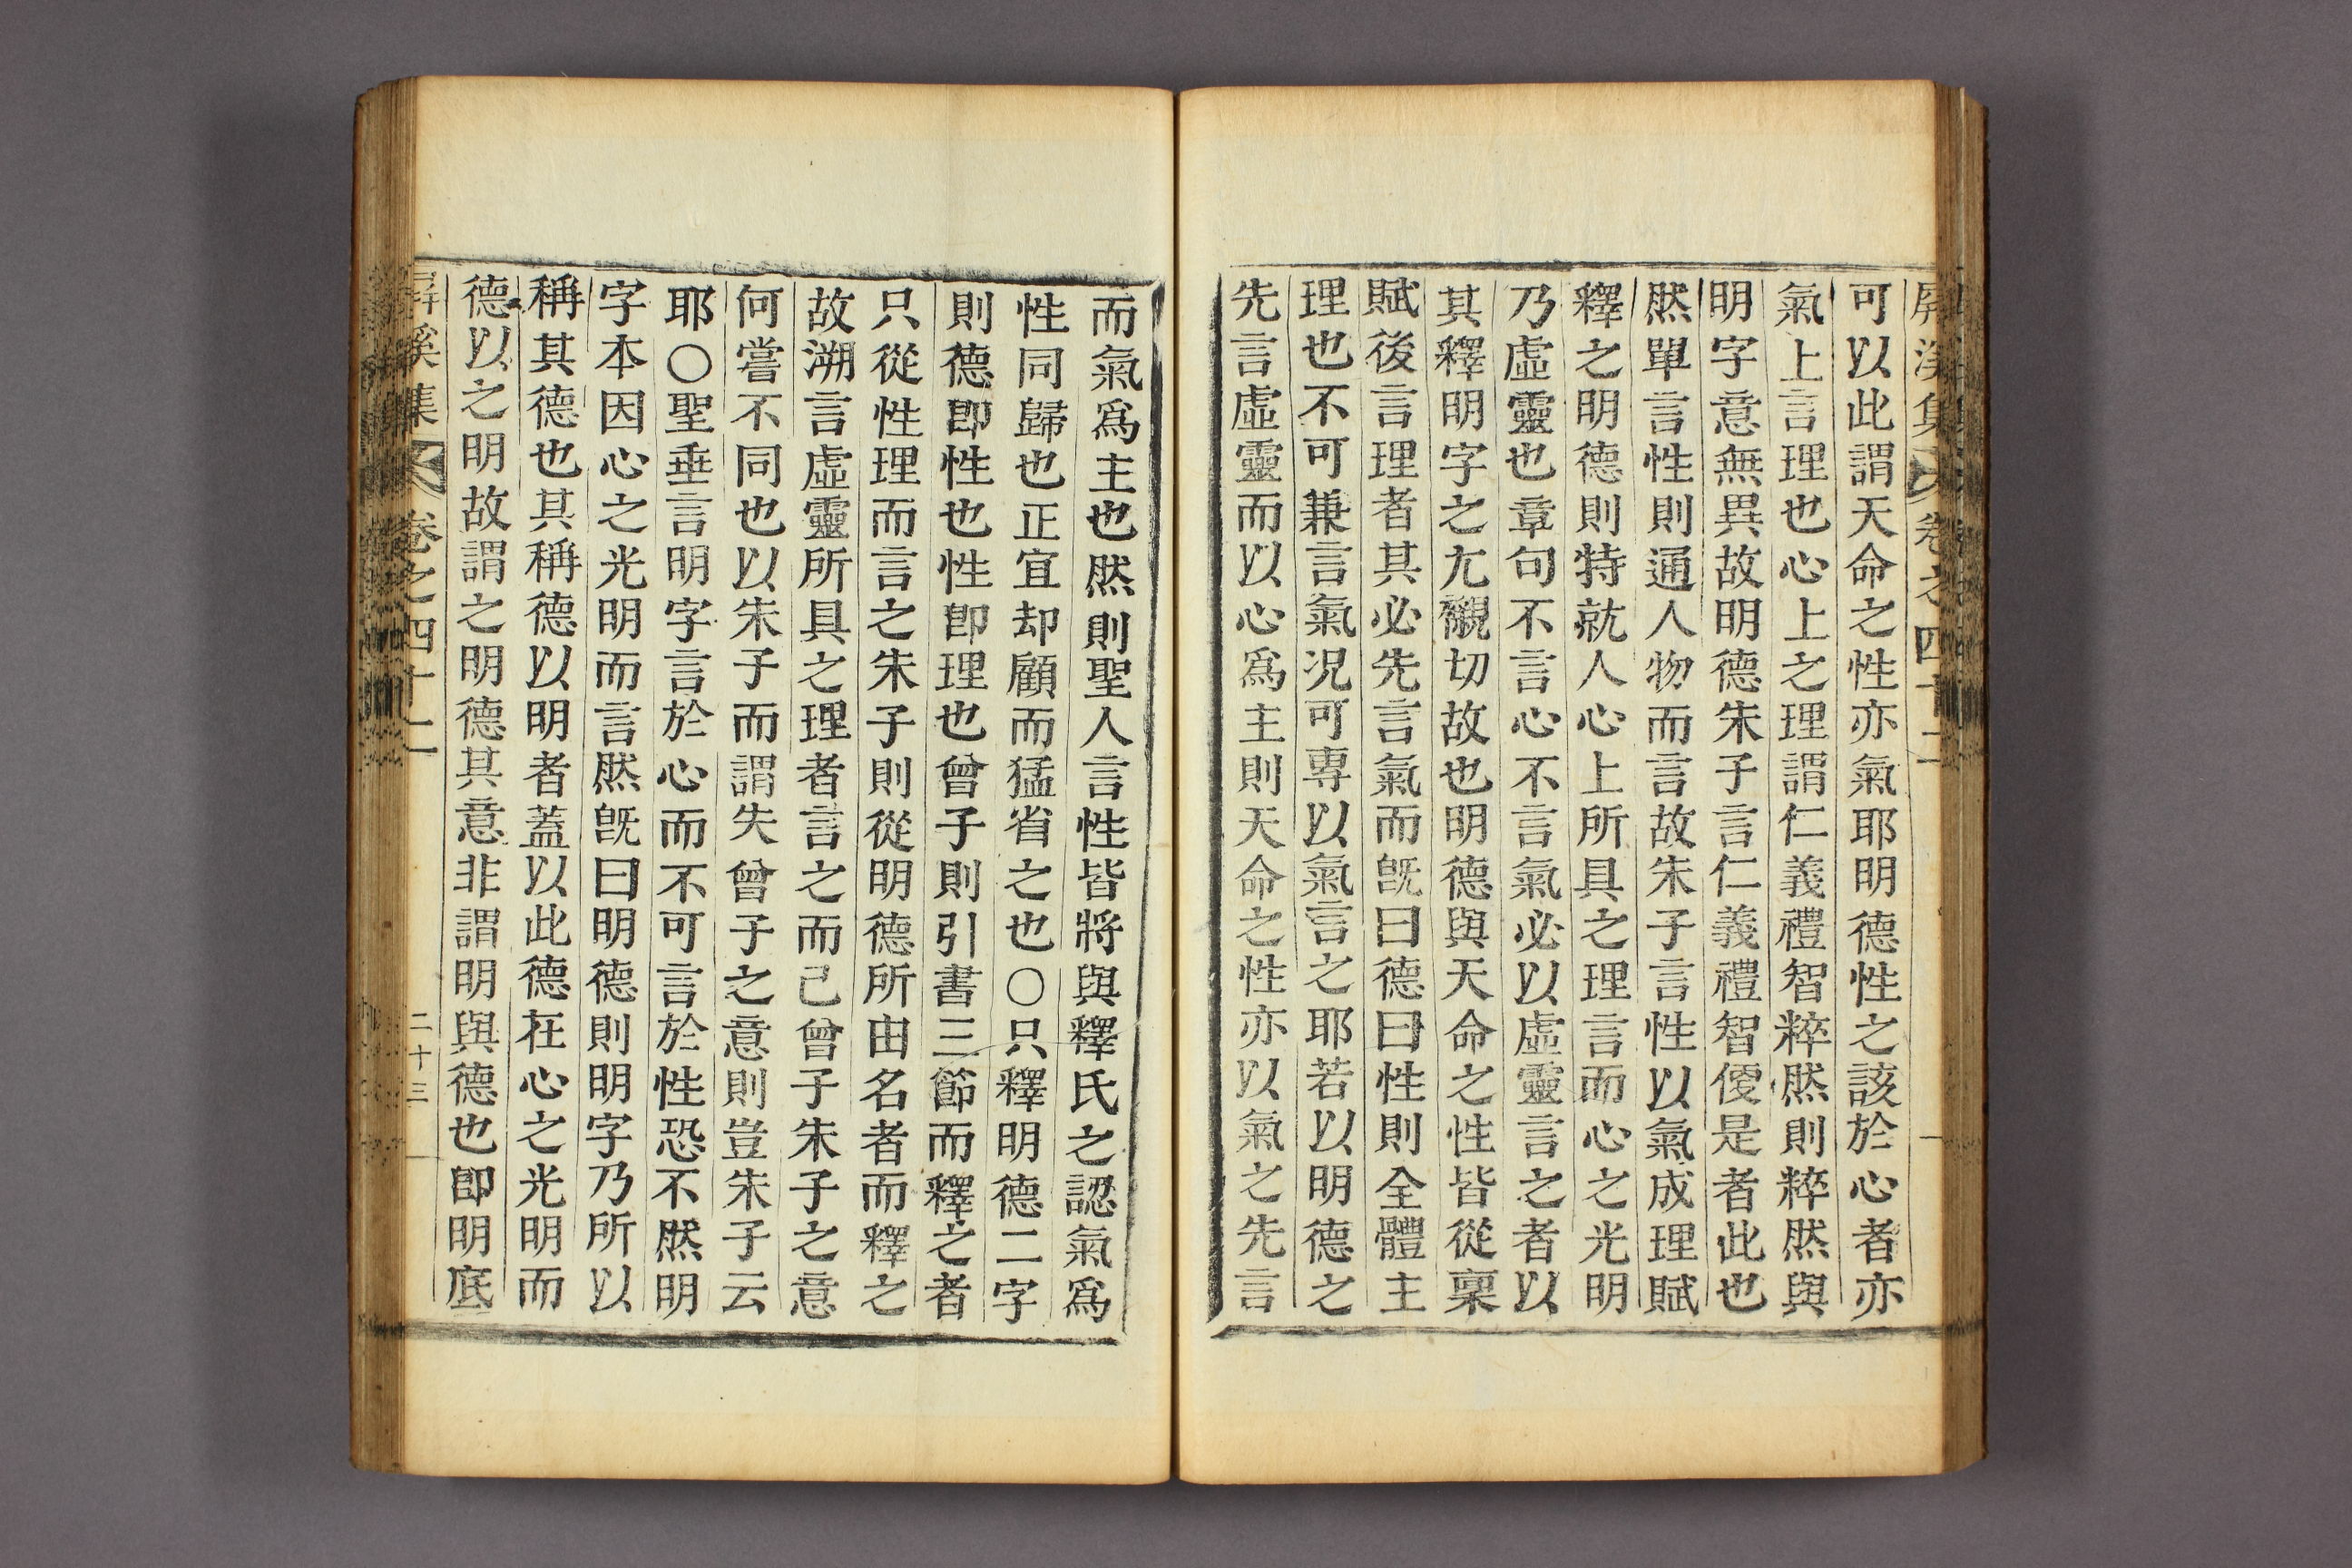 屏溪集 卷之四十二
可以此謂天命之性亦氣耶明德性之該於心者亦
氣上言理也心上之理謂仁義禮智粹然則粹然與
明字意無異故明德朱子言仁義禮智便是者此也
然單言性則通人物而言故朱子言性以氣成理賦
釋之明德則特就人心上所具之理言而心之光明
乃虛靈也章句不言心不言氣必以虛靈言之者以
其釋明字之尤襯切故也明德與天命之性皆從稟
賦後言理者其必先言氣而旣曰德曰性則全體主
理也不可兼言氣况可專以氣言之耶若以明德之
先言虛靈而以心爲主則天命之性亦以氣之先言
而氣爲主也然則聖人言性皆將與釋氏之認氣爲
性同歸也正宜却顧而猛省之也○只釋明德二字
則德卽性也性卽理也曾子則引書三節而釋之者
只從性理而言之朱子則從明德所由名者而釋之
故溯言虛靈所具之理者言之而已曾子朱子之意
何嘗不同也以朱子而謂失曾子之意則豈朱子云
耶○聖垂言明字言於心而不可言於性恐不然明
字本因心之光明而言然旣曰明德則明字乃所以
稱其德也其稱德以明者蓋以此德在心之光明而
德以之明故謂之明德其意非謂明與德也卽明底
屏溪集 卷之四十二 二十三